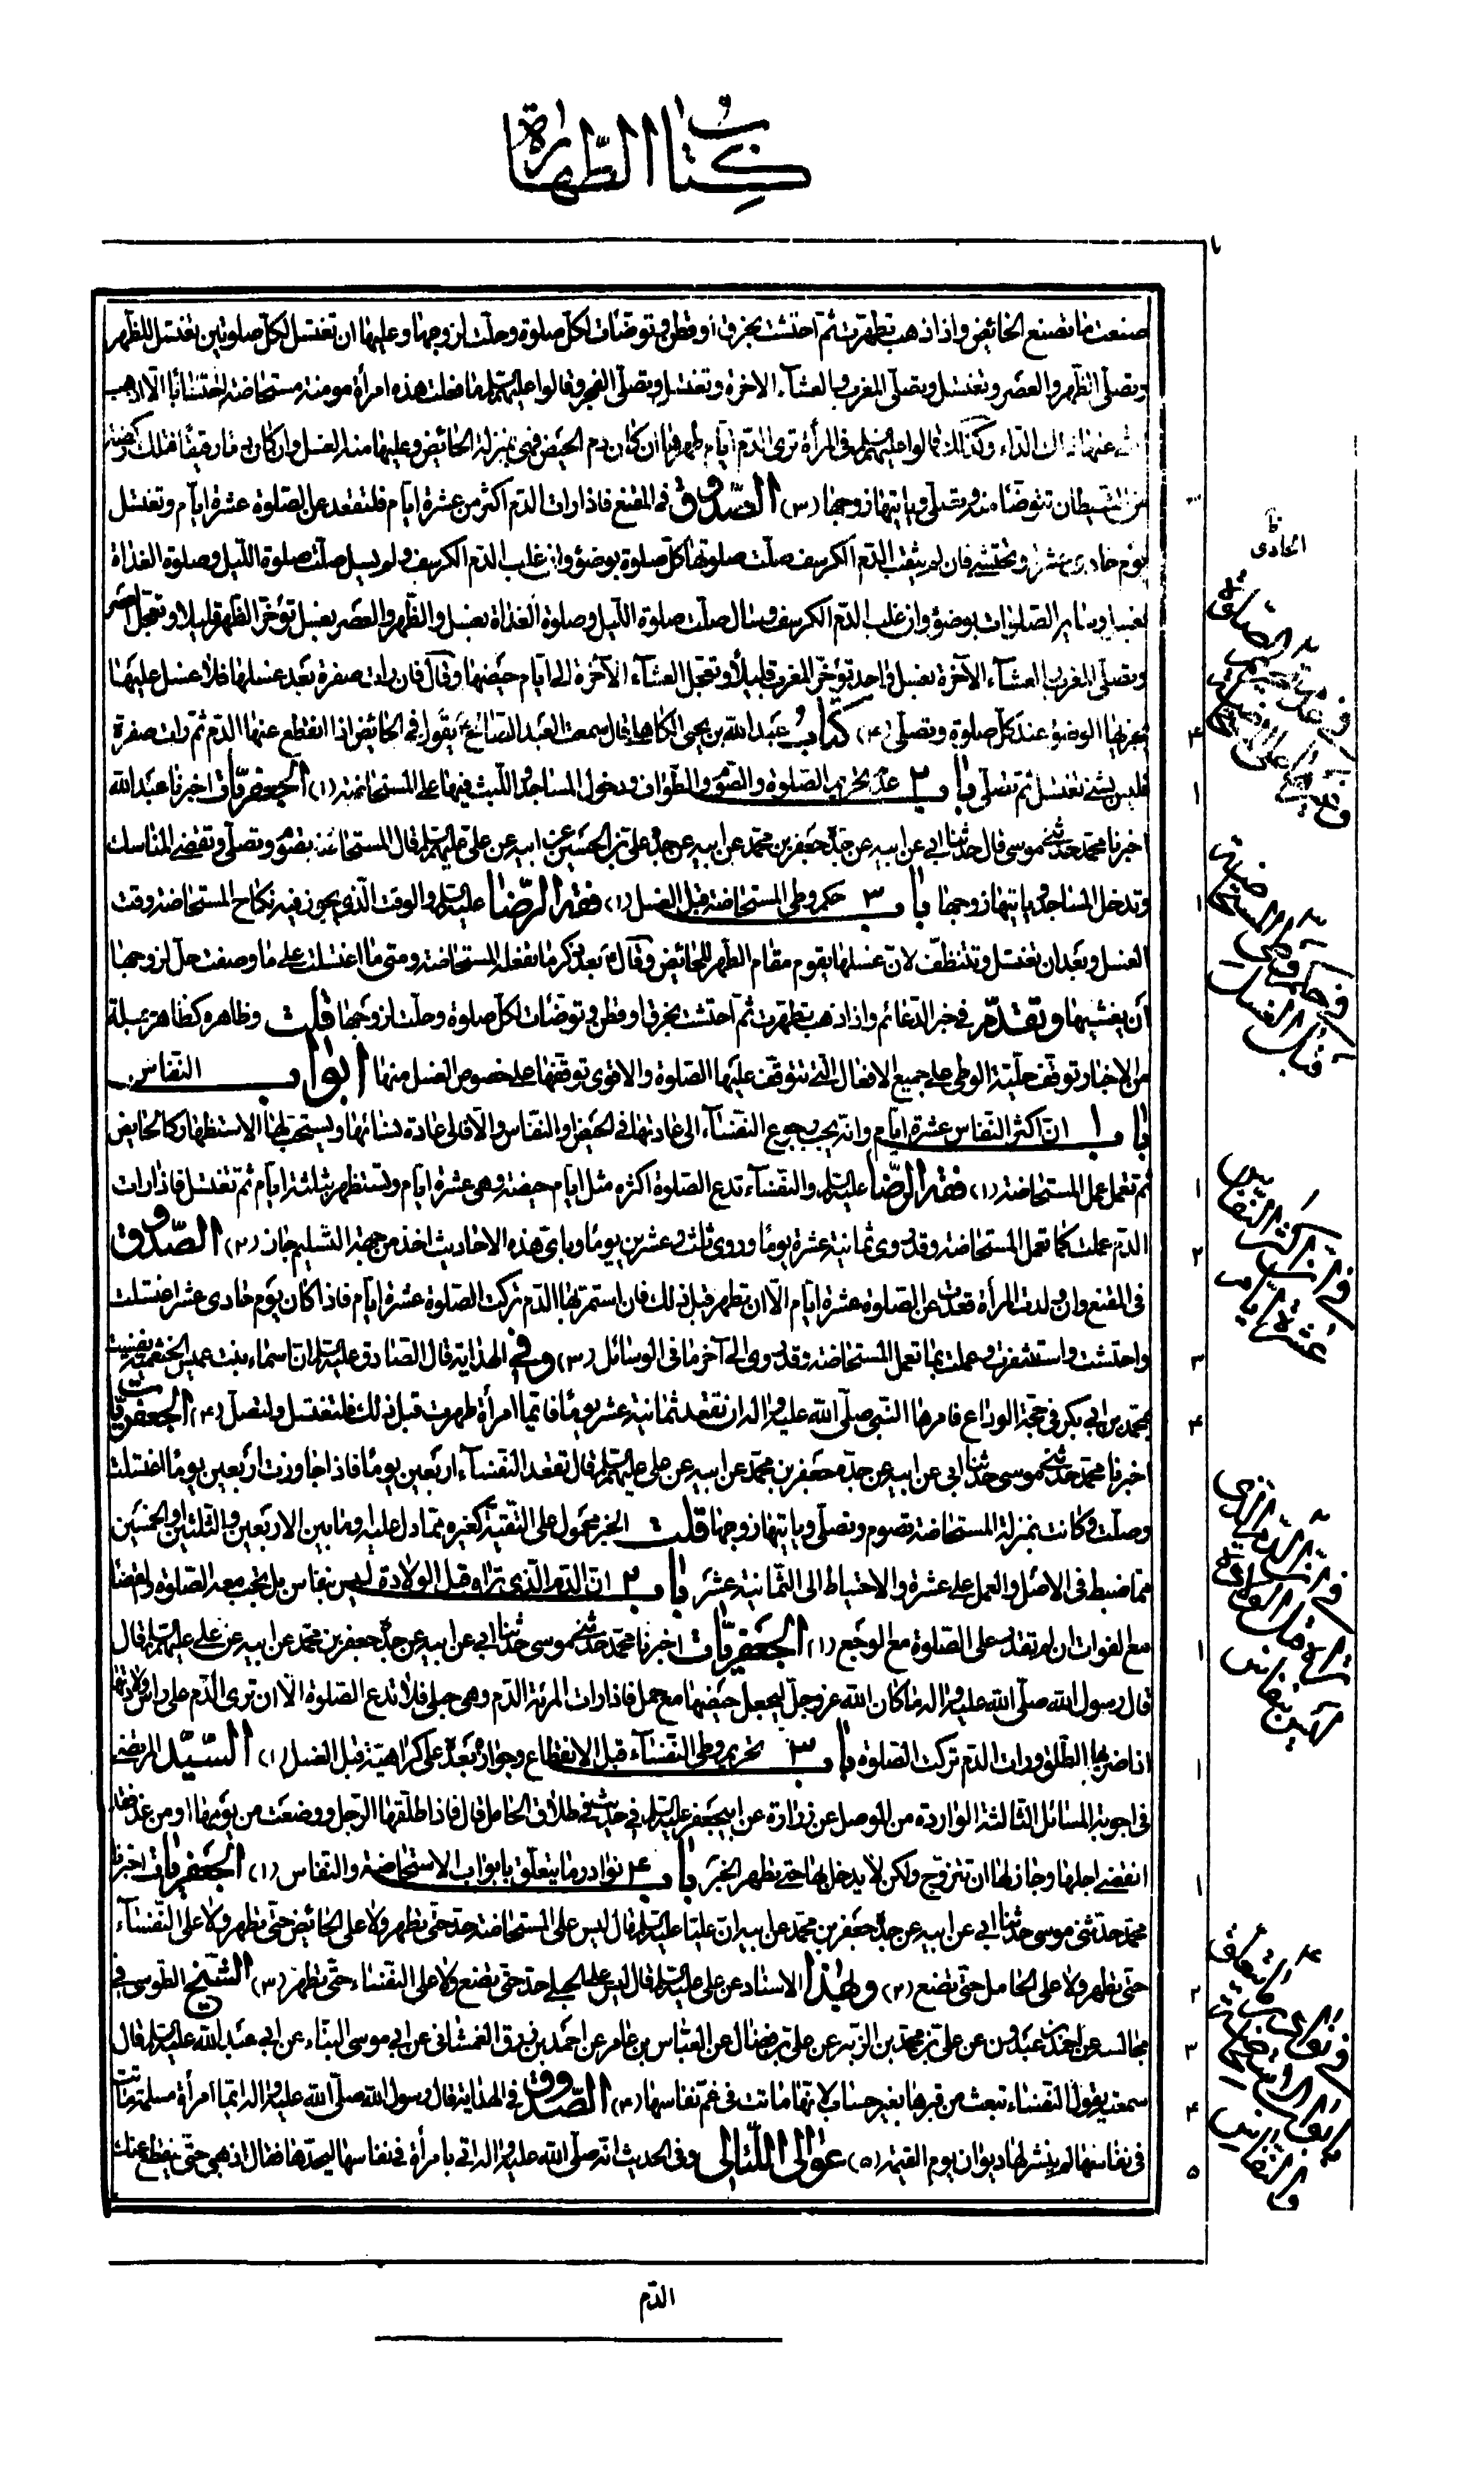 كتاب الطهارة
صنعت ما تصنع الحائض واذا ذهب تطهرت ثم احتشت بخرق او قطن وتوضأت لكل صلوة وحلت لزوجها وعليها ان تغتسل لكل صلوتين تغتسل للظهر
وتصلى الظهر والعصر وتغتسل وتصلى المغرب والعشاء الاخرة وتغتسل وتصلى الفجر وقالوا عليهم السلم ما فعلت هذه امرأة مومنة مستحاضة احتسابا الا اذهب
الله عنها ذلك الداء وكذلك قالوا عليهم السلم فى المرأة ترى الدم ايام طهرها ان كان دم الحيض فهى بمنزلة الحائض وعليها منه الغسل وان كان دما رقيقا فتلك ركضة
من الشيطان تتوضأ منه وتصلى وياتيها زوجها (٣) الصدوق فى المقنع فاذا رات الدم اكثر من عشرة ايام فلتقعد عن الصلوة عشرة ايام وتغتسل
يوم حادى عشر وتحتشى فان لم يثقب الدم الكرسف صلت صلوتها كل صلوة بوضوء وان غلب الدم الكرسف ولم يسل صلت صلوة الليل وصلوة الغداة
بغسل وسائر الصلوات بوضوء وان غلب الدم الكرسف وسال صلت صلوة الليل وصلوة الغداة بغسل والظهر والعصر بغسل تؤخر الظهر قليلا وتعجل العصر
وتصلى المغرب والعشاء الآخرة بغسل واحد تؤخر المغرب قليلا وتعجل العشاء الآخرة الى ايام حيضها وقال فان رات صفرة بعد غسلها فلا غسل عليها
يجزيها الوضوء عند كل صلوة وتصلى (٤) كتاب عبد الله بن يحيى الكاهلى قال سمعت العبد الصالح ع يقول فى الحائض اذا انقطع عنها الدم ثم رات صفرة
فليس بشئ تغتسل ثم تصلى باب ٢ عدم تحريم الصلوة والصوم والطواف ودخول المساجد واللبث فيها على المستحاضة (١) الجعفريات اخبرنا عبد الله
اخبرنا محمد حدثنى موسى قال حدثنا ابى عن ابيه عن جده جعفر بن محمد عن ابيه عن جده على بن الحسين عن ابيه عن على عليهم السلم قال المستحاضة تصوم وتصلى وتقضى المناسك
وتدخل المساجد وياتيها زوجها باب ٣ حكم وطى المستحاضة قبل الغسل (١) فقه الرضا عليه السلم والوقت الذى يجوز فيه نكاح المستحاضة وقت
الغسل وبعد ان تغتسل وتتنظف لان غسلها يقوم مقام الطهر للحائض وقال ع بعد ذكر ما تفعله المستحاضة ومتى ما اغتسلت على ما وصفت حل لزوجها
ان يغشيها وتقدم فى خبر الدعائم واذا ذهب تطهرت ثم احتشت بخرق او قطن وتوضأت لكل صلوة وحلت لزوجها قلت وظاهره كظاهر جملة
من الاخبار توقف حلية الوطى على جميع الافعال التى تتوقف عليها الصلوة والاقوى توقفها على خصوص الغسل منها ابواب النفاس
باب ١ ان اكثر النفاس عشرة ايام وانه يجب رجوع النفساء الى عادتها فى الحيض والنفاس والا فالى عادة نسائها ويستحب لها الاستظهار كالحايض
ثم تعمل عمل المستحاضة (١) فقه الرضا عليه السلم والنفساء تدع الصلوة اكثره مثل ايام حيضه وهى عشرة ايام وتستظهر بثلثة ايام ثم تغتسل فاذا رات
الدم عملت كما تعمل المستحاضة وقد روى ثمانية عشرة يوما وروى ثلث وعشرين يوما وباى هذه الاحاديث اخذ من جهة التسليم جاز (٢) الصدوق
فى المقنع وان ولدت المرأة قعدت عن الصلوة عشرة ايام الا ان تطهر قبل ذلك فان استمر بها الدم تركت الصلوة عشرة ايام فاذا كان يوم حادى عشر اغتسلت
واحتشت واستثفرت وعملت بما تعمل المستحاضة وقد روى الى آخر ما فى الوسائل (٣) وفى الهداية قال الصادق عليه السلم ان اسماء بنت عميس الخثعمية نفست
بمحمد بن ابى بكر فى حجة الوداع فامرها النبى صلى الله عليه واله ان تقعد ثمانية عشر يوما فايما امرأة طهرت قبل ذلك فلتغتسل ولتصل (٤) الجعفريات
اخبرنا محمد حدثنى موسى حدثنا ابى عن ابيه عن جده جعفر بن محمد عن ابيه عن على عليهم السلم قال تقعد النفساء اربعين يوما فاذا جاوزت اربعين يوما اغتسلت
وصلت وكانت بمنزلة المستحاضة تصوم وتصلى وياتيها زوجها قلت الخبر محمول على التقية كغيره مما دل عليه وما بين الاربعين والثلثين او الخمسين
مما ضبط فى الاصل والعمل على عشرة والاحتياط الى الثمانية عشر باب ٢ ان الدم الذى تراه قبل الولادة ليس بنفاس بل يجب معه الصلوة والقضاء
مع الفوات ان لم تقدر على الصلوة مع الوجع (١) الجعفريات اخبرنا محمد حدثنى موسى حدثنا ابى عن ابيه عن جده جعفر بن محمد عن ابيه عن على عليهم السلم قال
قال رسول الله صلى الله عليه واله ما كان الله عز وجل ليجعل حيضها مع حمل فاذا رات المرئة الدم وهى حبلى فلا تدع الصلوة الا ان ترى الدم على راس ولادتها
اذا ضربها الطلق ورات الدم تركت الصلوة باب ٣ تحريم وطى النفساء قبل الانقطاع وجوازه بعده على كراهية قبل الغسل (١) السيد المرتضى
فى اجوبة المسائل الثالثة الواردة من الموصل عن زرارة عن ابى جعفر عليه السلم فى حديث فى طلاق الحامل قال فاذا طلقها الرجل ووضعت من يومها او من غد فقد
انقضى اجلها وجاز لها ان تتزوج ولكن لا يدخل بها حتى تطهر الخبر باب ٤ نوادر ما يتعلق بابواب الاستحاضة والنفاس (١) الجعفريات اخبرنا
محمد حدثنى موسى حدثنا ابى عن ابيه عن جده جعفر بن محمد عن ابيه ان عليا عليه السلم قال ليس على المستحاضة حد حتى تطهر ولا على الحائض حتى تطهر ولا على النفساء
حتى تطهر ولا على الحامل حتى تضع (٢) وبهذا الاسناد عن على عليه السلم قال ليس على الحبلى حد حتى تضع ولا على النفساء حتى تطهر (٣) الشيخ الطوسى فى
مجالسه عن احمد بن عبدون عن على بن محمد بن الزبير عن على بن فضال عن العباس بن عامر عن احمد بن رزق الغمشانى عن ابى موسى البناء عن ابى عبد الله عليه السلم قال
سمعته يقول النفساء تبعث من قبرها بغير حساب لانها ماتت فى غم نفاسها (٤) الصدوق فى الهداية قال رسول الله صلى الله عليه واله ايما امرأة مسلمة ماتت
فى نفاسها لم ينشر لها ديوان يوم القيمة (٥) عوالى اللئالى وفى الحديث انه صلى الله عليه واله اتى بامرأة فى نفاسها ليحدها فقال اذهبى حتى ينقطع عنك
الدم
الحادى
٤
١
١
١
٢
٣
٤
١
١
١
٢
٣
٤
٥